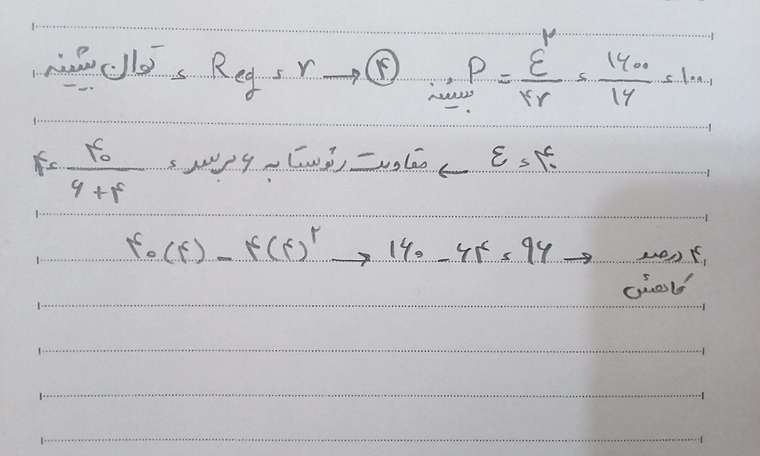 توان بیشینه ، Req = r → ④ P بیشینه = ε²/۴r = ۱۶۰۰/۱۶ = ۱۰۰
ε = ۴۰ ← مقاومت رئوستا به ۶ برسد ، ۴۰/۶+۴ = ۴
۴۰(۴) - ۴(۴)² → ۱۶۰ - ۶۴ = ۹۶ → ۴ درصد کاهش